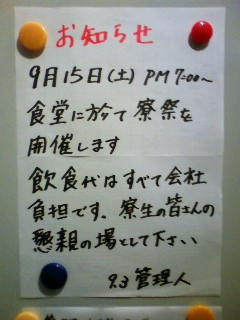 お知らせ
9月15日(土) PM 7:00〜
食堂に於て寮祭を
開催します
飲食代はすべて会社
負担です、寮生の皆さんの
懇親の場として下さい
9.3 管理人